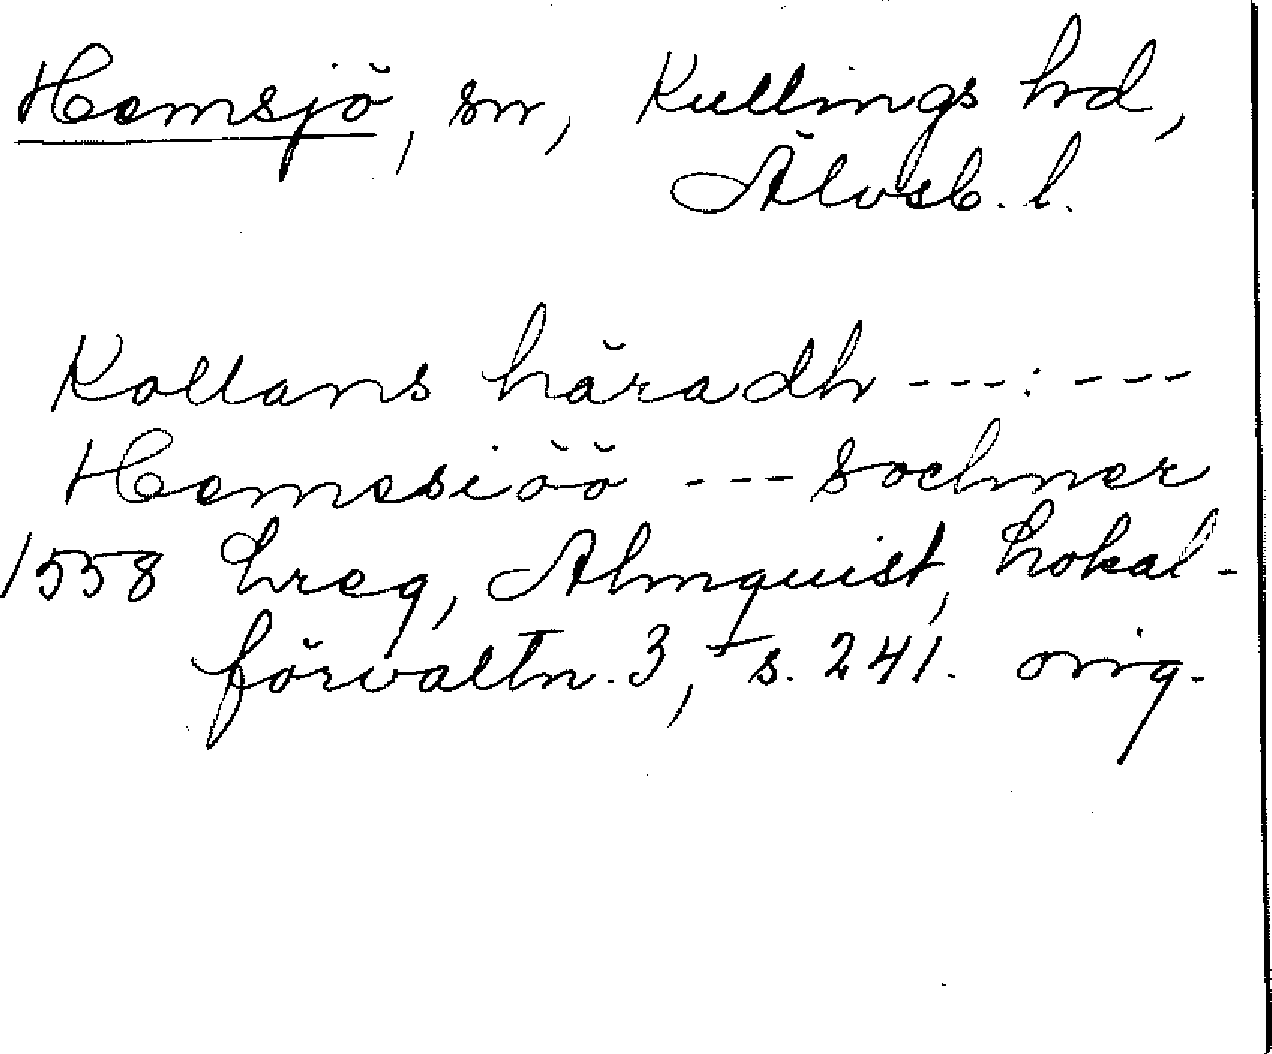 Hemsjö, sn, Kullings hd,
Älvsb. l.
Kollans häradh ---:---
Hemesiöö --- sochner
1558 Lreg, Almquist, Lokal-
förvaltn. 3, s. 241. orig.